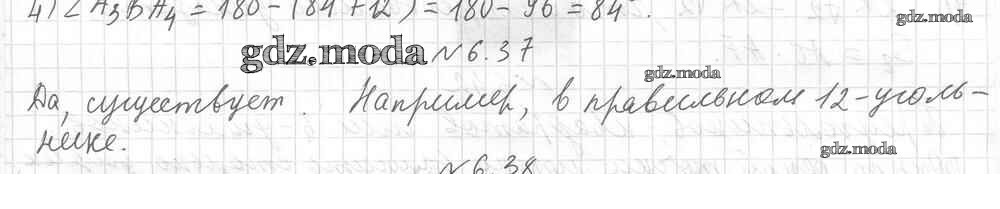 4) ∠A₃BA₄ = 180 - (84 + 12) = 180 - 96 = 84°.
gdz.moda
gdz.moda
№6.37
gdz.moda
Да, существует. Например, в правильном 12-уголь-
нике.
gdz.moda
№6.38